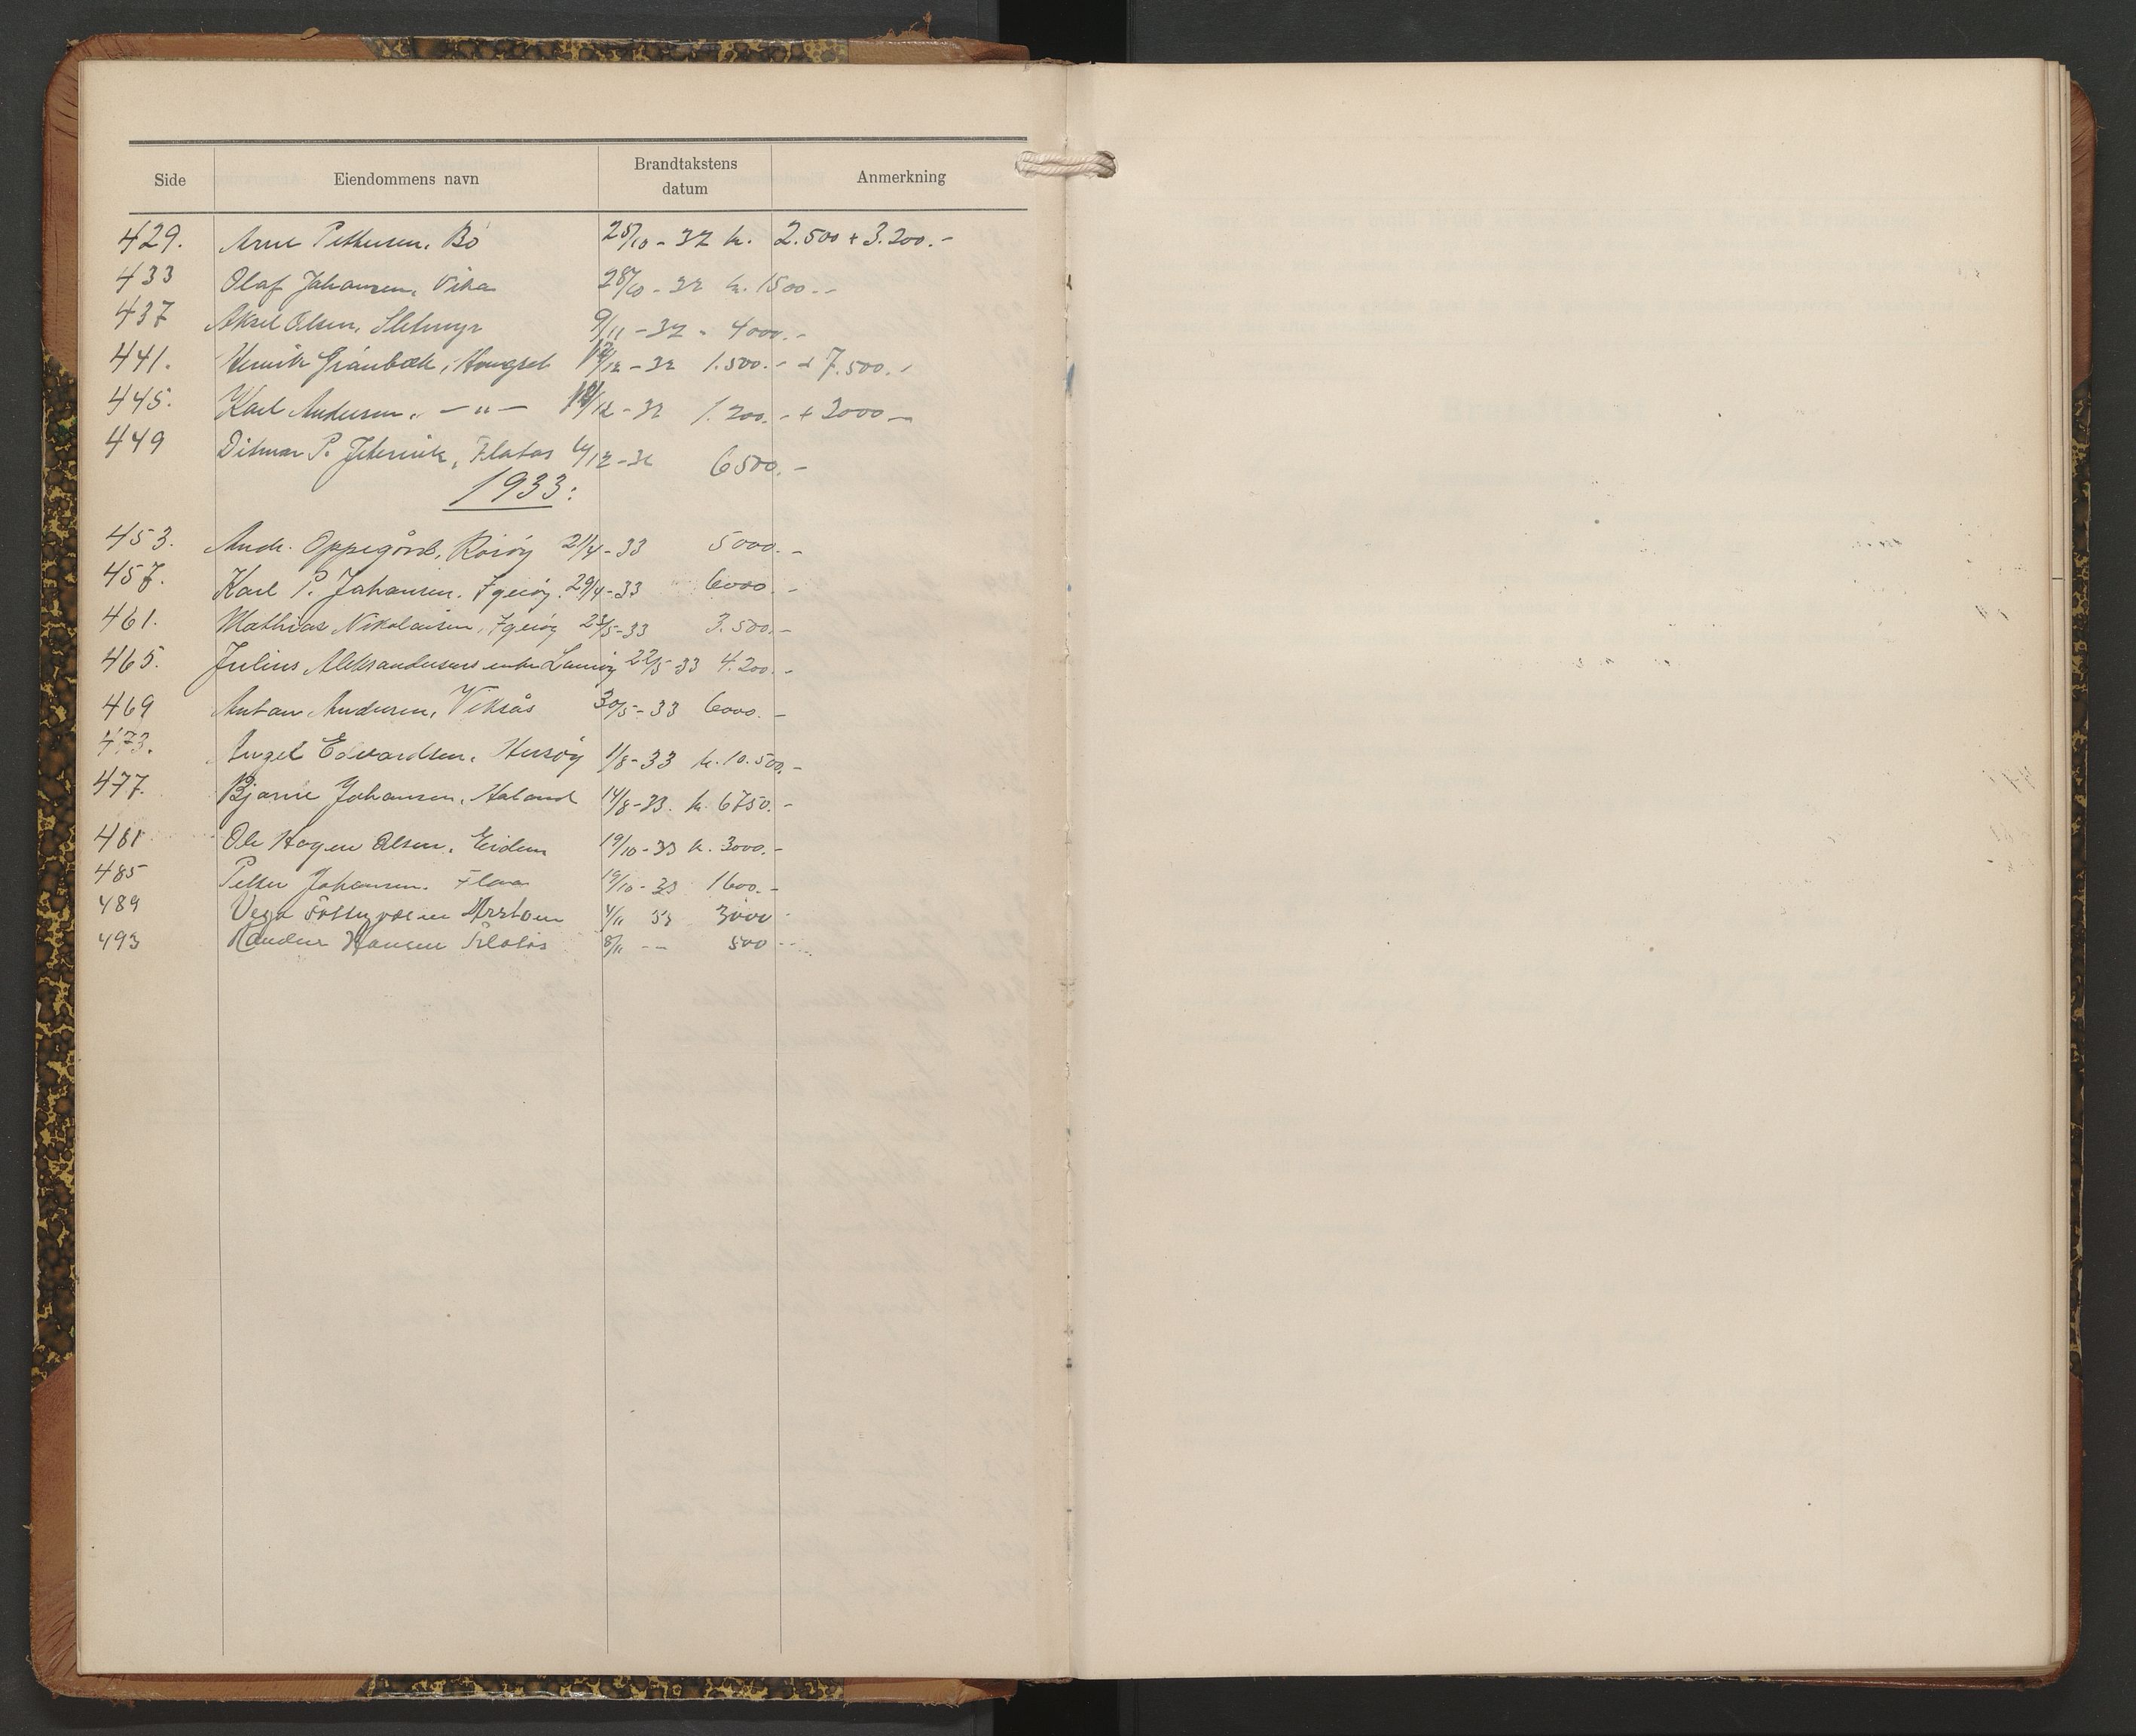 Side Eiendommens navn Brandtakstens datum Anmerkning
429. Arne Pettersen, Bö 25/10 - 32 kr. 2.500 + 3.200.-
433 Olaf Johansen, Vika 28/10 - 32 kr. 1500.-
437 Aksel Olsen, 9/11 - 32 - 4000.-
441. Henrik Grönbæk, /12 - 32 1.500.- + 7.500.-
445. Karl Andersen, - " - /12 - 32 1.200.- + 2000 -
449 Ditmar P. /12 - 32 6500.-
1933:
453. Andr. Oppegård, Rörøy 21/4 - 33 5000.-
457. Karl P. Johansen. 29/4 - 33 6000.-
461. Mathias Nikolaisen, 23/5 - 33 3.500.-
465. Julius Aleksandersens enke 22/5 33 4.200.-
469 Anton Andersen, Viksås 30/5 - 33 6000.-
473. Angel Edvardsen, Husøy 1/8 - 33 kr. 10.500.-
477. Bjarne Johansen, Haland 14/8 - 33. kr. 6750.-
481 Ole Hagen Olsen, Eidem 19/10 - 33 kr. 3000.-
485 Petter Johansen. 19/10 - 33 1600.-
489 Vega 4/11 33 3000
493 Hansen 8/11 -- 500 --